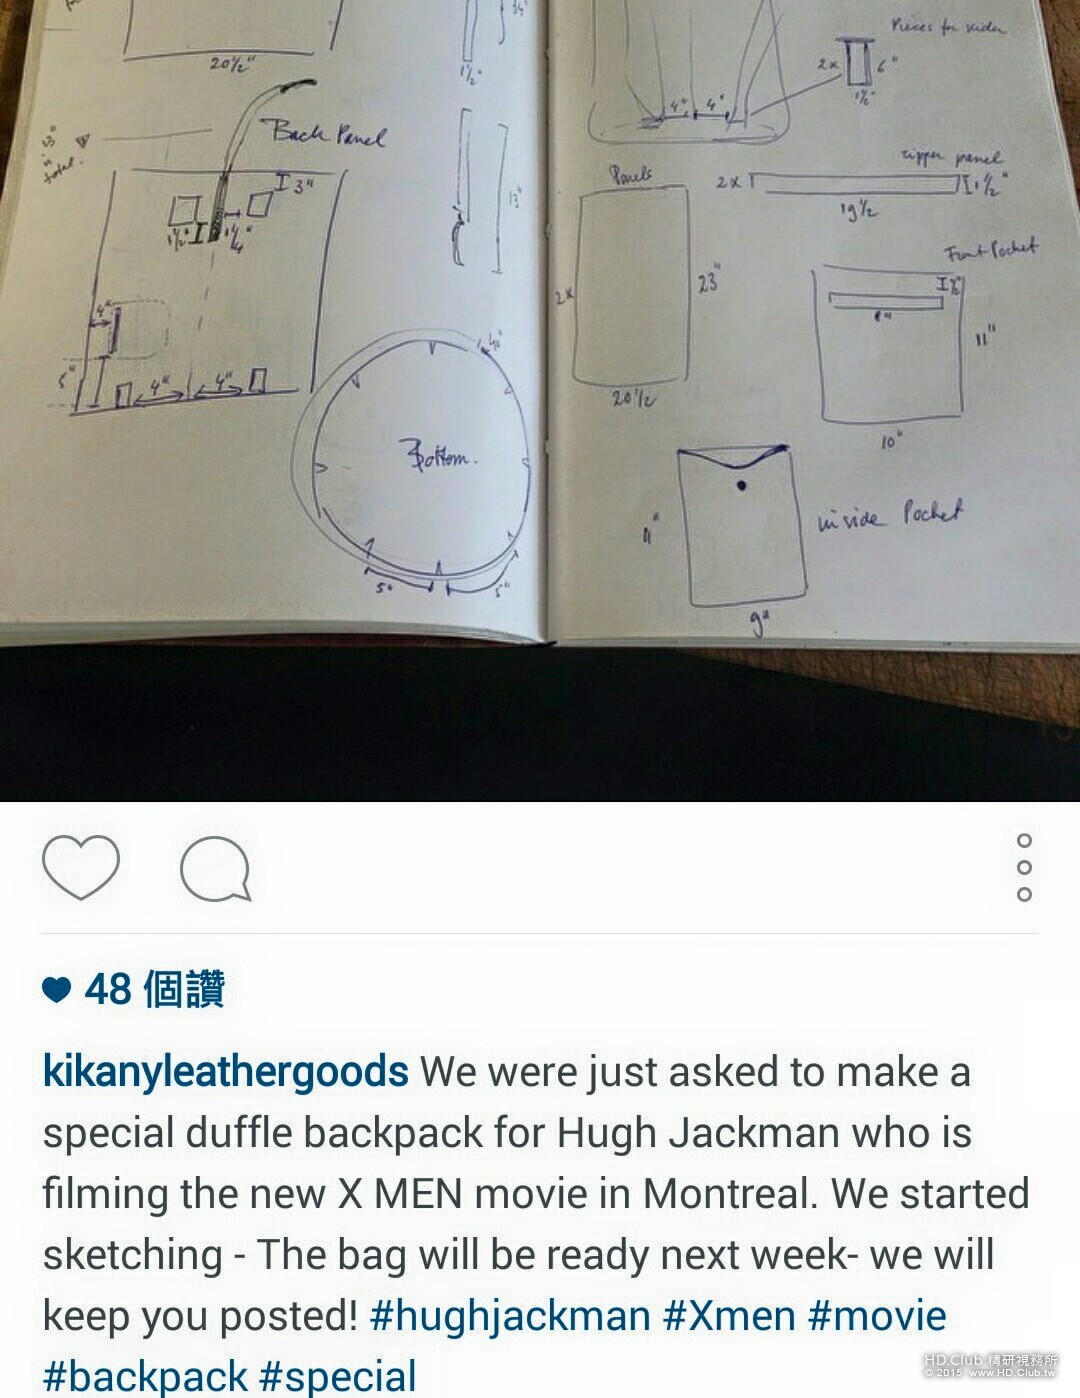 20½"
1½"
Back Panel
3"
1½"
1¼"
13"
4"
5"
4"
4"
Bottom.
5"
5"
Pieces for slider
2x
6"
1½"
4"
4"
Panels
2x
23"
20½
zipper panel
2x
1½"
19½
Front Pocket
8"
11"
10"
inside Pocket
11"
9"
48 個讚
kikanyleathergoods We were just asked to make a
special duffle backpack for Hugh Jackman who is
filming the new X MEN movie in Montreal. We started
sketching - The bag will be ready next week- we will
keep you posted! #hughjackman #Xmen #movie
#backpack #special
HD.Club 精研視務所
© 2015 www.HD.Club.tw